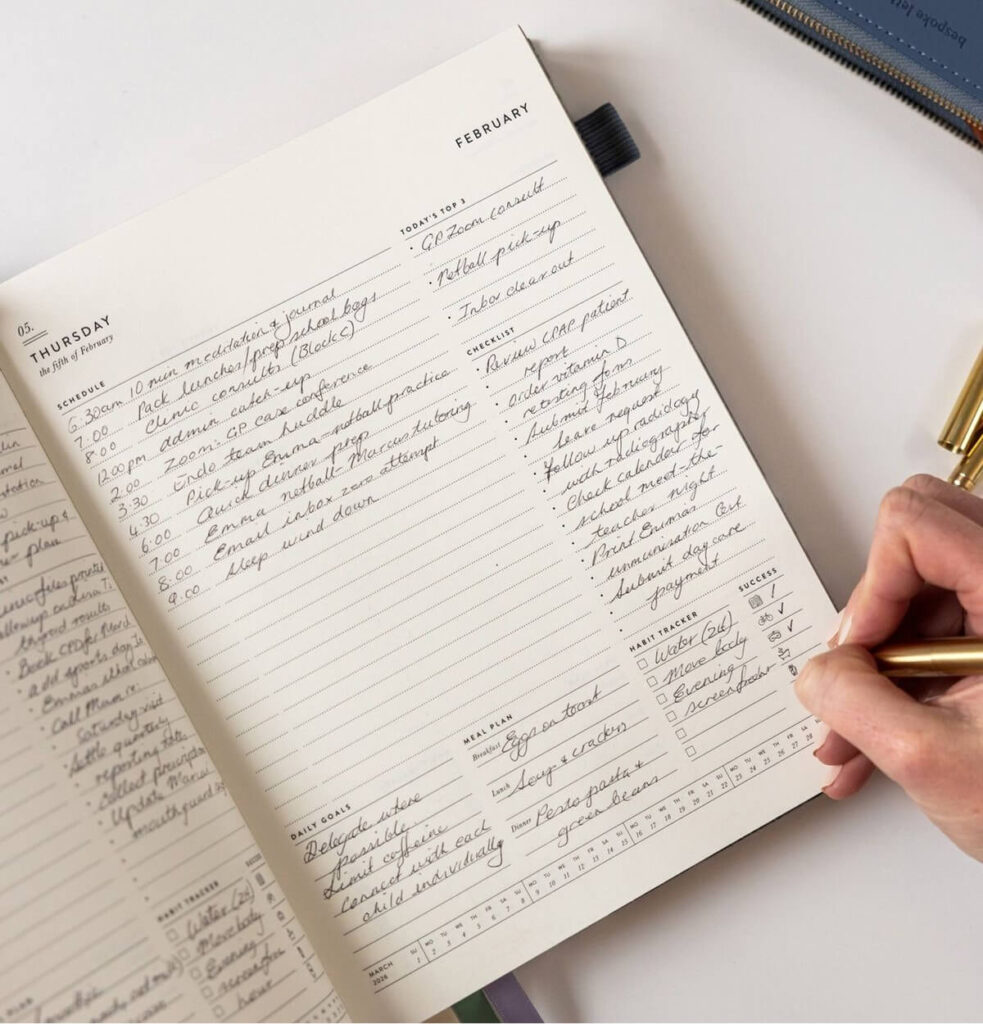 bespoke
FEBRUARY
05.
THURSDAY
the fifth of February
SCHEDULE
6:30am 10 min meditation & journal
7:00 Pack lunches/prep school bags
8:00 Clinic consults (Block C)
12:00pm admin catch-up
2:00 Zoom: GP case conference
3:30 Endo team huddle
4:30 Pick-up Emma - netball practice
6:00 Quick dinner prep
7:00 Emma netball - Marcus tutoring
8:00 Email inbox zero attempt
9:00 Sleep wind down
TODAY'S TOP 3
GP Zoom consult
Netball pick-up
Inbox clear out
CHECKLIST
Review CPAP patient
report
order vitamin D
retesting forms
Submit February
leave request
Follow up radiology
with radiographer
Check calendar for
school meet-the-
teacher night
Print Emmas
immunisation Cert
Submit day care
payment
HABIT TRACKER
SUCCESS
Water (2L)
Move body
Evening
screen
MEAL PLAN
Breakfast Eggs on toast
Lunch Soup & crackers
Dinner Pesto pasta &
green beans
DAILY GOALS
Delegate where
possible
Limit caffeine
Connect with each
child individually
MARCH
2026
SU MO TU WE TH FR SA SU MO TU WE TH FR SA SU MO TU WE TH FR SA SU MO TU WE TH FR SA
1 2 3 4 5 6 7 8 9 10 11 12 13 14 15 16 17 18 19 20 21 22 23 24 25 26 27 28
pick-up &
plan
thyroid results
add sports day
Emmas
Call Mum re:
Saturday visit
Settle quarterly
reporting
Collect
Update
mouthguard
HABIT TRACKER
Water (2L)
Move body
Evening
screenfree
hour